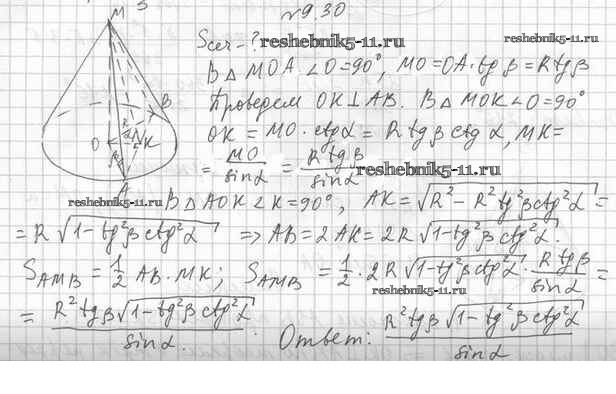 №9.30
M
Sсег-? reshebnik5-11.ru
В △ MOA ∠O=90°, MO=OA·tgβ=Rtgβ
Проведем OK⊥AB. В △ MOK ∠O=90°
OK = MO·ctgα = R tgβ ctgα, MK=
= MO/sinα = R tgβ/sinα reshebnik5-11.ru
B
O
K
A
reshebnik5-11.ru
В △ AOK ∠K=90°, AK=√(R²-R²tg²βctg²α)=
=R√(1-tg²βctg²α) ⇒ AB=2AK=2R√(1-tg²βctg²α).
S_AMB=1/2 AB·MK; S_AMB=1/2·2R√(1-tg²βctg²α)·R tgβ/sinα=
reshebnik5-11.ru
= R²tgβ√(1-tg²βctg²α)/sinα. Ответ: R²tgβ√(1-tg²βctg²α)/sinα